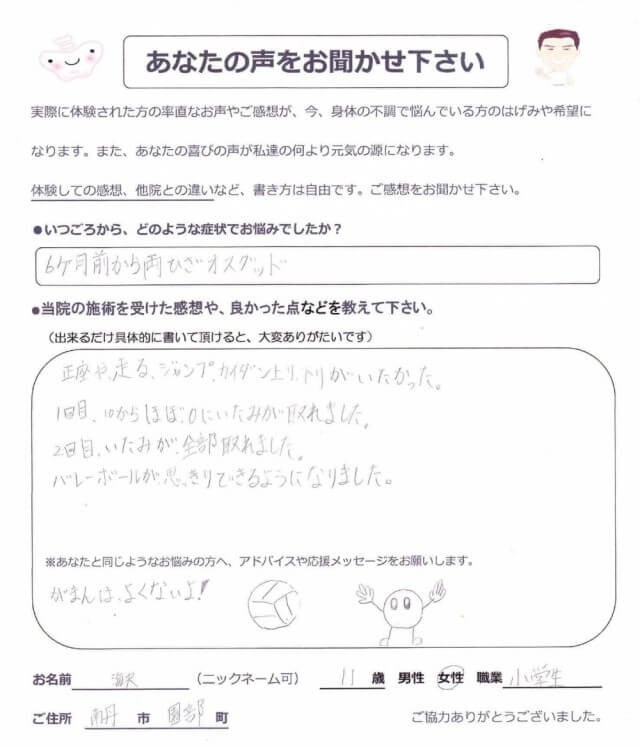 あなたの声をお聞かせ下さい
実際に体験された方の率直なお声やご感想が、今、身体の不調で悩んでいる方のはげみや希望に
なります。また、あなたの喜びの声が私達の何より元気の源になります。
体験しての感想、他院との違いなど、書き方は自由です。ご感想をお聞かせ下さい。
●いつごろから、どのような症状でお悩みでしたか?
6ケ月前から両ひざオスグッド
●当院の施術を受けた感想や、良かった点などを教えて下さい。
(出来るだけ具体的に書いて頂けると、大変ありがたいです)
正座や、走る、ジャンプ、カイダン上り、下りがいたかった。
1回目、10からほぼ0にいたみが取れました。
2回目、いたみが、全部取れました。
バレーボールが、思っきりできるようになりました。
※あなたと同じようなお悩みの方へ、アドバイスや応援メッセージをお願いします。
がまんは、よくないよ!
お名前 (ニックネーム可) 11 歳 男性 女性 職業 小学生
ご住所 南丹 市 園部 町 ご協力ありがとうございました。